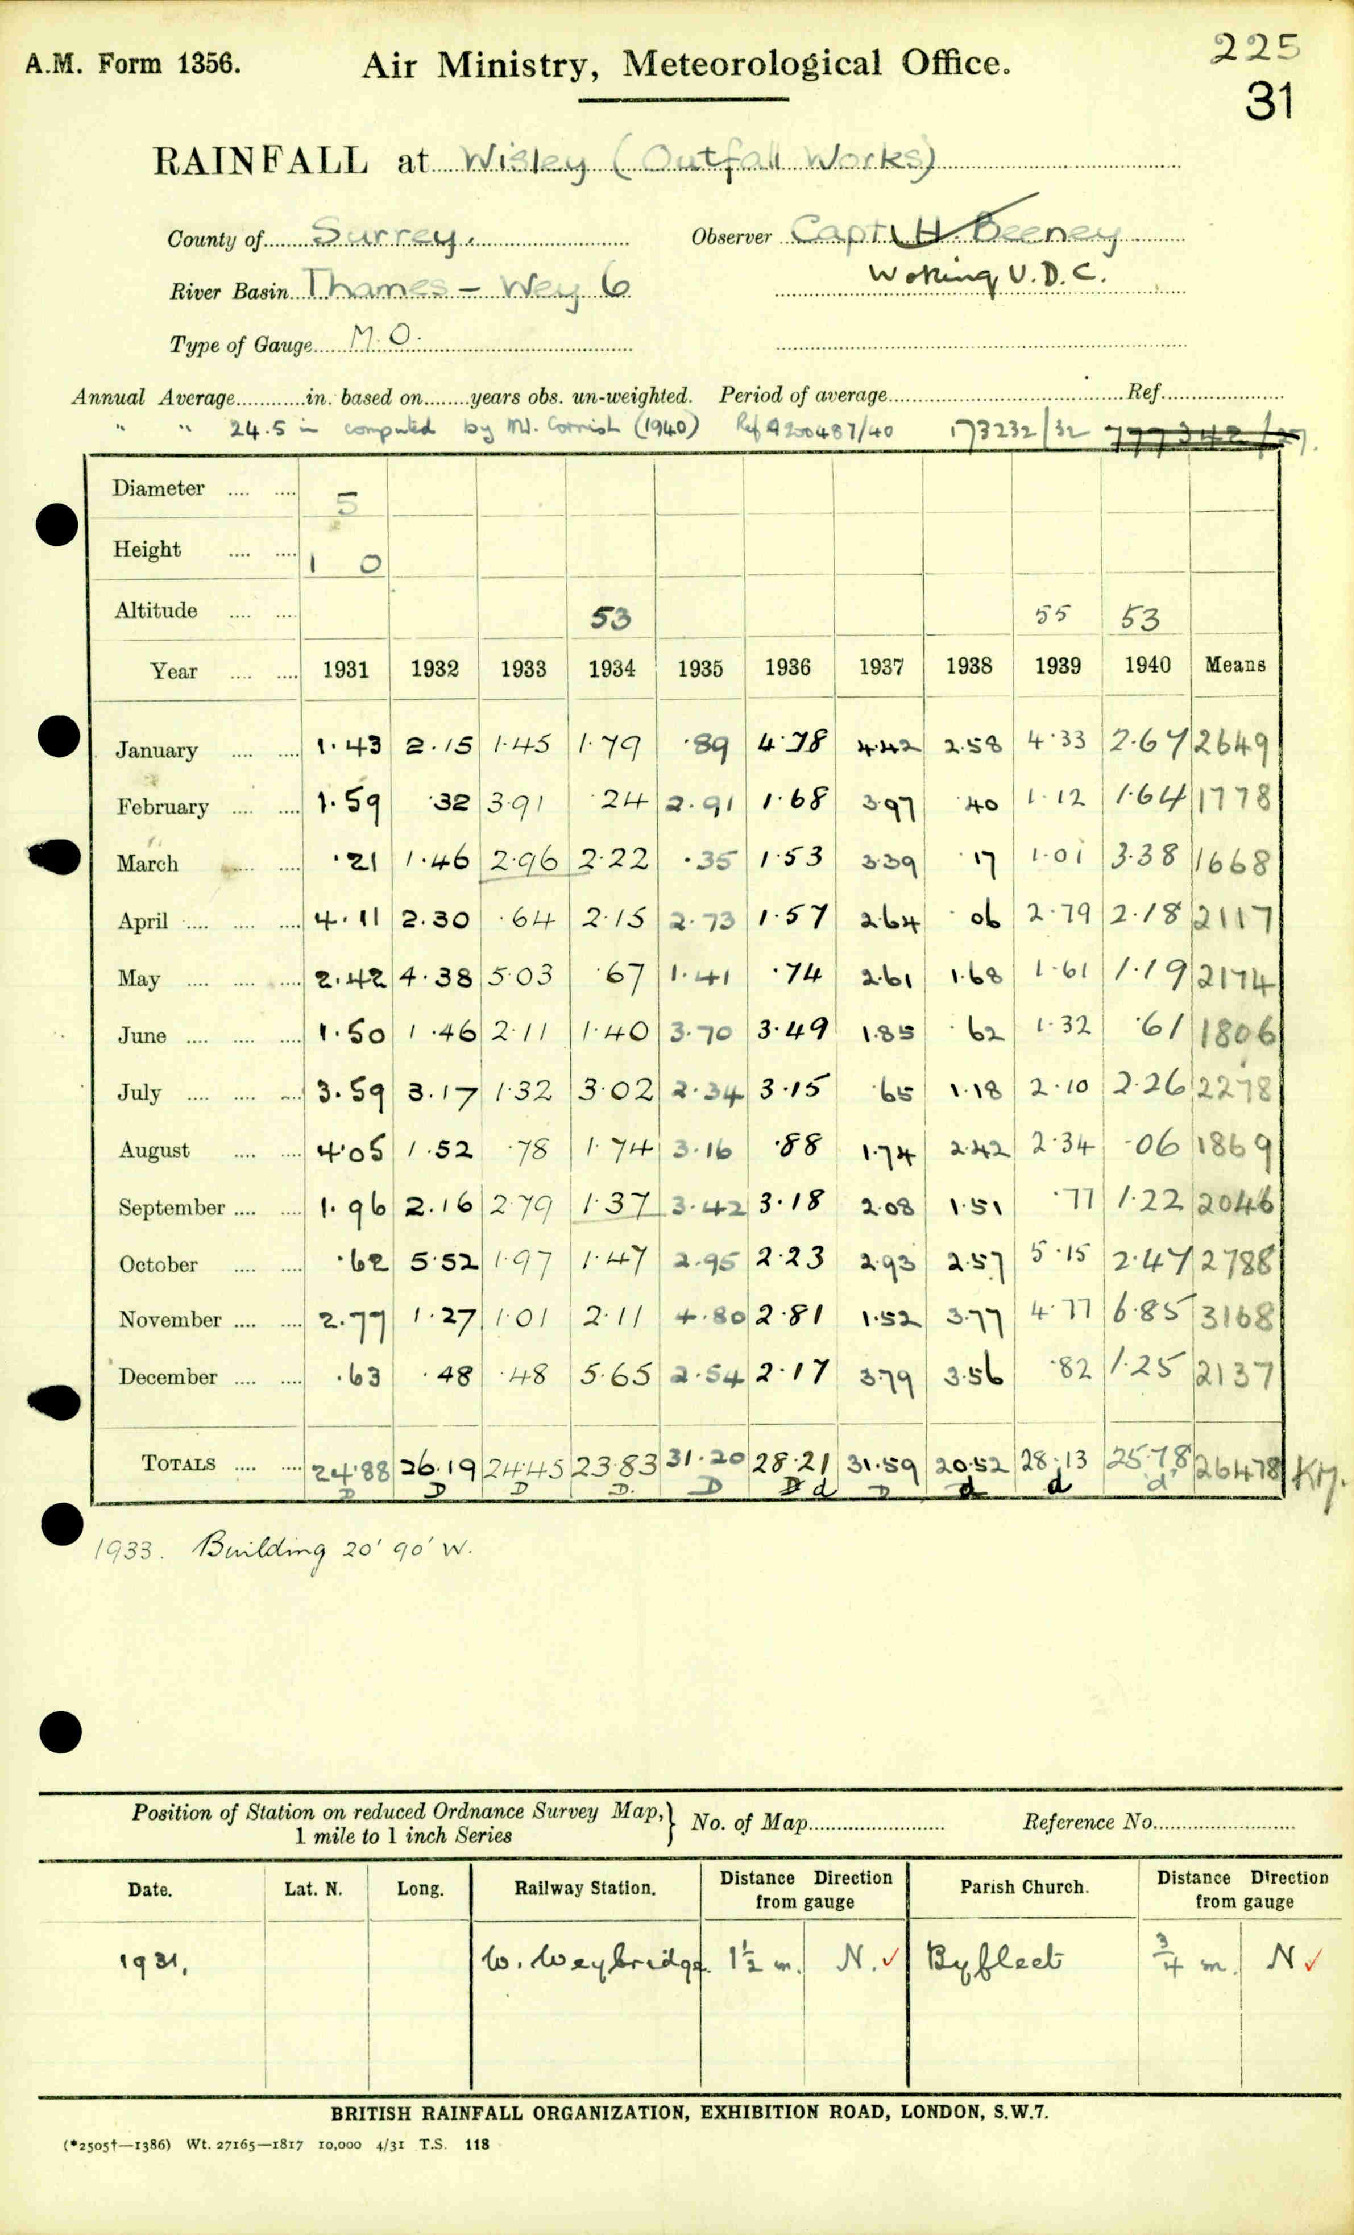 A.M. Form 1356. Air Ministry, Meteorological Office. 225
31
RAINFALL at Wisley (Outfall Works)
County of Surrey. Observer Capt. H. Beeney
River Basin Thames - Wey 6 Woking U.D.C.
Type of Gauge M.O.
Annual Average in. based on years obs. un-weighted. Period of average Ref.
" " 24.5 in computed by Mr. Cornish (1940) Ref A200487/40 173232/32 777342/27.
Diameter 5
Height 1 0
Altitude 53 55 53
Year 1931 1932 1933 1934 1935 1936 1937 1938 1939 1940 Means
January 1.43 2.15 1.45 1.79 .89 4.78 4.42 2.58 4.33 2.67 2649
February 1.59 .32 3.91 .24 2.91 1.68 3.97 .40 1.12 1.64 1778
March .21 1.46 2.96 2.22 .35 1.53 3.39 .17 1.01 3.38 1668
April 4.11 2.30 .64 2.15 2.73 1.57 2.64 .06 2.79 2.18 2117
May 2.42 4.38 5.03 .67 1.41 .74 2.61 1.68 1.61 1.19 2174
June 1.50 1.46 2.11 1.40 3.70 3.49 1.85 .62 1.32 .61 1806
July 3.59 3.17 1.32 3.02 2.34 3.15 .65 1.18 2.10 2.26 2278
August 4.05 1.52 .78 1.74 3.16 .88 1.74 2.42 2.34 .06 1869
September 1.96 2.16 2.79 1.37 3.42 3.18 2.08 1.51 .77 1.22 2046
October .62 5.52 1.97 1.47 2.95 2.23 2.93 2.57 5.15 2.47 2788
November 2.77 1.27 1.01 2.11 4.80 2.81 1.52 3.77 4.77 6.85 3168
December .63 .48 .48 5.65 2.54 2.17 3.79 3.56 .82 1.25 2137
TOTALS 24.88 26.19 24.45 23.83 31.20 28.21 31.59 20.52 28.13 25.78 26478 KM.
D D D D. D D d D d d d
1933. Building 20' 90' W.
Position of Station on reduced Ordnance Survey Map, No. of Map Reference No.
1 mile to 1 inch Series
Date. Lat. N. Long. Railway Station. Distance Direction from gauge Parish Church. Distance Direction from gauge
1931. W. Weybridge 1½ m. N. ✓ Byfleet ¾ m. N ✓
BRITISH RAINFALL ORGANIZATION, EXHIBITION ROAD, LONDON, S.W.7.
(*2505†—1386) Wt. 27165—1817 10,000 4/31 T.S. 118